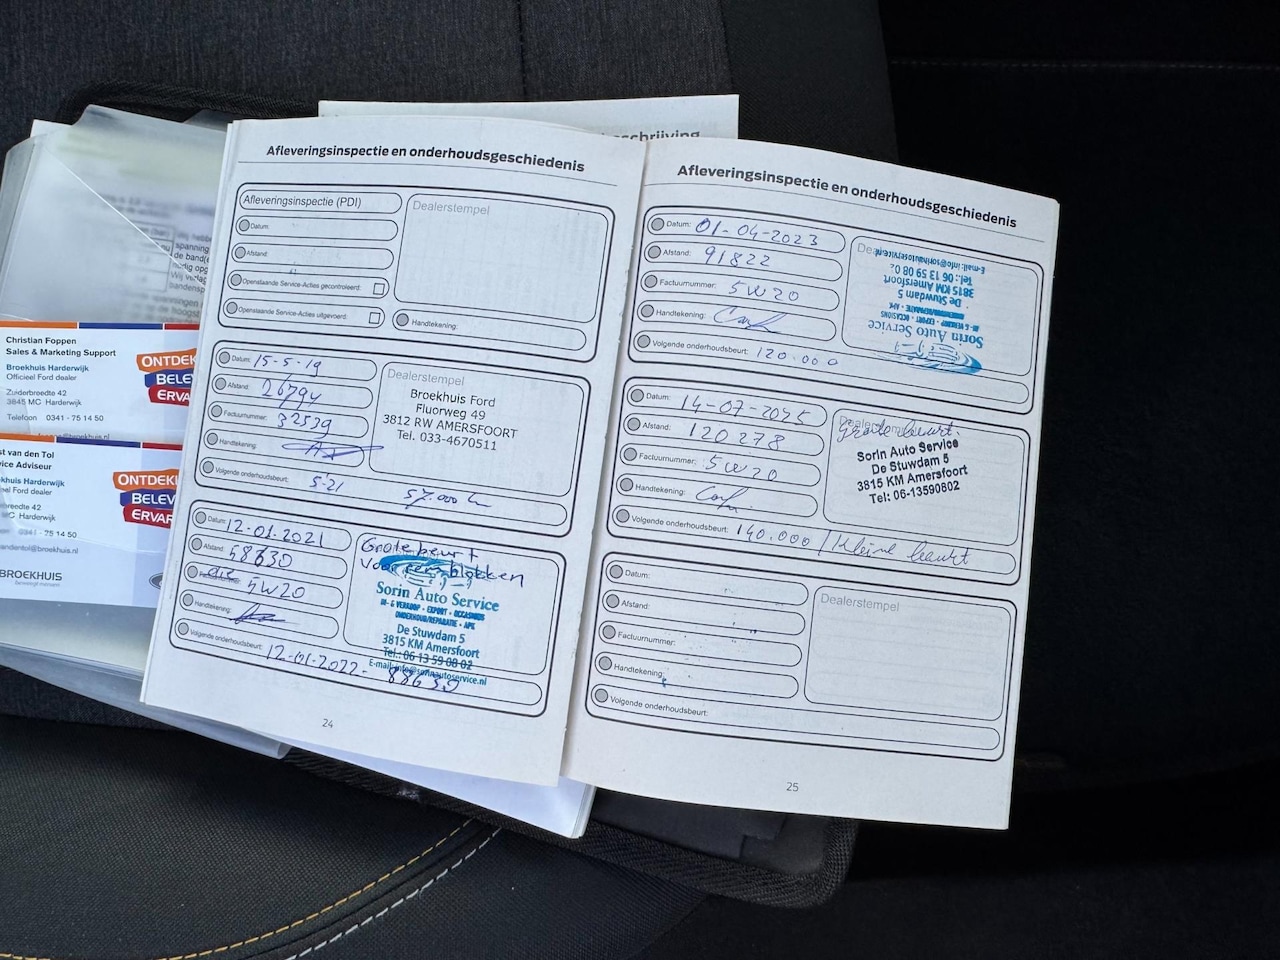 schrijving
Christian Foppen
Sales & Marketing Support
Broekhuis Harderwijk
Officieel Ford dealer
Zuiderbreedte 42
3845 MC Harderwijk
Telefoon 0341 - 75 14 50
@broekhuis.nl
ONTDEK
BELE
ERVA
st van den Tol
vice Adviseur
Harderwijk
eel Ford dealer
reedte 42
MC Harderwijk
0341 - 75 14 50
andentol@broekhuis.nl
BROEKHUIS
ONTDEK
BELEV
ERVAR
Afleveringsinspectie en onderhoudsgeschiedenis
Afleveringsinspectie (PDI)
Dealerstempel
Datum:
Afstand:
Openstaande Service-Acties gecontroleerd:
Openstaande Service-Acties uitgevoerd:
Handtekening:
Datum: 15-5-19
Afstand: 26794
Factuurnummer: 32539
Handtekening:
Volgende onderhoudsbeurt: 5-21 57.000 km
Dealerstempel
Broekhuis Ford
Fluorweg 49
3812 RW AMERSFOORT
Tel. 033-4670511
Datum: 12-01-2021
Afstand: 58630
olie 5W20
Handtekening:
Volgende onderhoudsbeurt: 12-01-2022- 88630
Grote beurt
Voor remblokken
Sorin Auto Service
IN- & VERKOOP - EXPORT - OCCASIONS
ONDERHOUD/REPARATIE - APK
De Stuwdam 5
3815 KM Amersfoort
Tel.: 06 13 59 08 02
E-mail: info@sorinautoservice.nl
24
Afleveringsinspectie en onderhoudsgeschiedenis
Datum: 01-04-2023
Afstand: 91822
Factuurnummer: 5W20
Handtekening:
Volgende onderhoudsbeurt: 120.000
Sorin Auto Service
IN- & VERKOOP - EXPORT - OCCASIONS
De Stuwdam 5
3815 KM Amersfoort
Tel.: 06 13 59 08 02
E-mail: info@sorinautoservice.nl
Datum: 14-07-2025
Afstand: 120278
Factuurnummer: 5W20
Handtekening:
Volgende onderhoudsbeurt: 140.000 / Kleine beurt
Dealerstempel
Grote beurt.
Sorin Auto Service
De Stuwdam 5
3815 KM Amersfoort
Tel: 06-13590802
Datum:
Afstand:
Factuurnummer:
Handtekening:
Volgende onderhoudsbeurt:
Dealerstempel
25